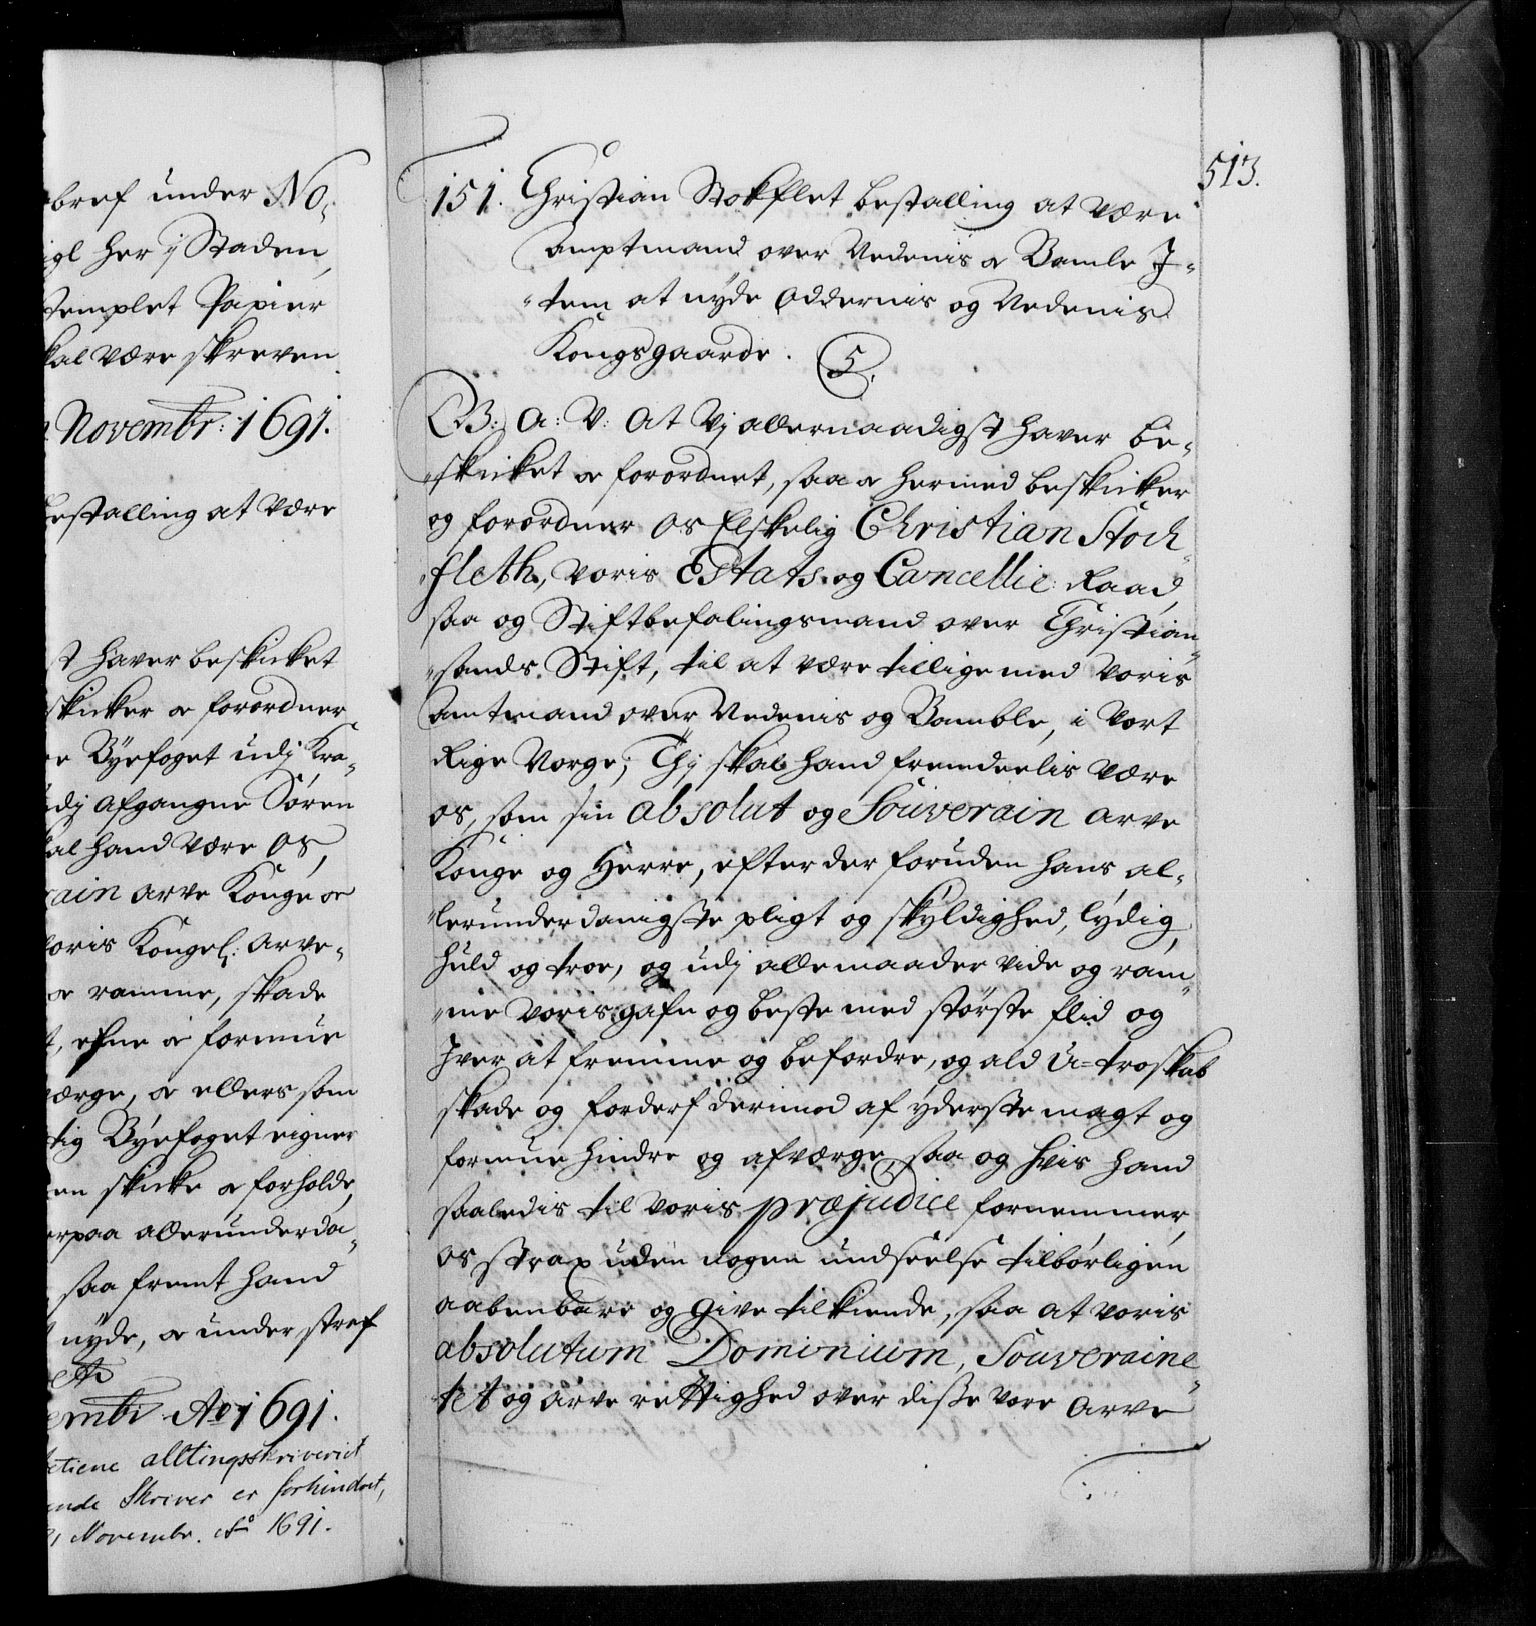 bref under No,
igl her i Staden,
stemplet Papiir
skal være skreven
Novembr: 1691.
Bestalling at være
st hafver beskicket
skicker oc forordner
Byefoget udj Kra„
udj afgangne Søren
al hand være Os,
rain arve Konge oc
Voris Kongel: Arve„
oc ramme, skade
t, efne oc formue
værge, oc ellers som
tig Byefoget eigner
en skicke oc forholde,
erpaa allerunderda„
saa fremt hand
nyde, oc under straf
embr Ao 1691.
alltingsskriveriet
ende Skriver er forhindret,
Novembr. Ao 1691.
513.
151. Christian Stokflet bestalling at være
Amptmand over Nedenis oc Bamle J„
„tem at nyde Oddernis og Nedenis
Kongsgaarde. 5.
C. B: A: V: At Vj allernaadigst hafver be„
„skicket oc forordnet, saa oc hermed beskicker
og forordner Os Elskelig Christian Stoch„
„fleth, Voris Estats og Cancellie Raad,
saa og Stiftbefalingsmand over Christian„
„sands Stift, til at være tillige med Voris
Amtmand over Nedenis og Bamble, i Vort
Rige Norge; Thj skal hand fremdeelis være
os, som sin absolut og Souverain arve
Konge og Herre, efter der foruden hans al„
„lerunderdanigste pligt og skyldighed, lydig,
huld og troe, og udj alle maader vide og ram„
„me voris gafn og beste med største flid og
Jver at fremme og befordre, og ald U=troskab
skade og forderf derimod af yderste magt og
formue hindre og afværge, saa og hvis hand
saaledis til voris præjudice fornemmer,
os strax uden nogen undseelse tilbørligen
aabenbare og give tilkiende, saa at voris
absolutum Dominium, Souveraine„
tet og arve rettighed over disse vore Arve